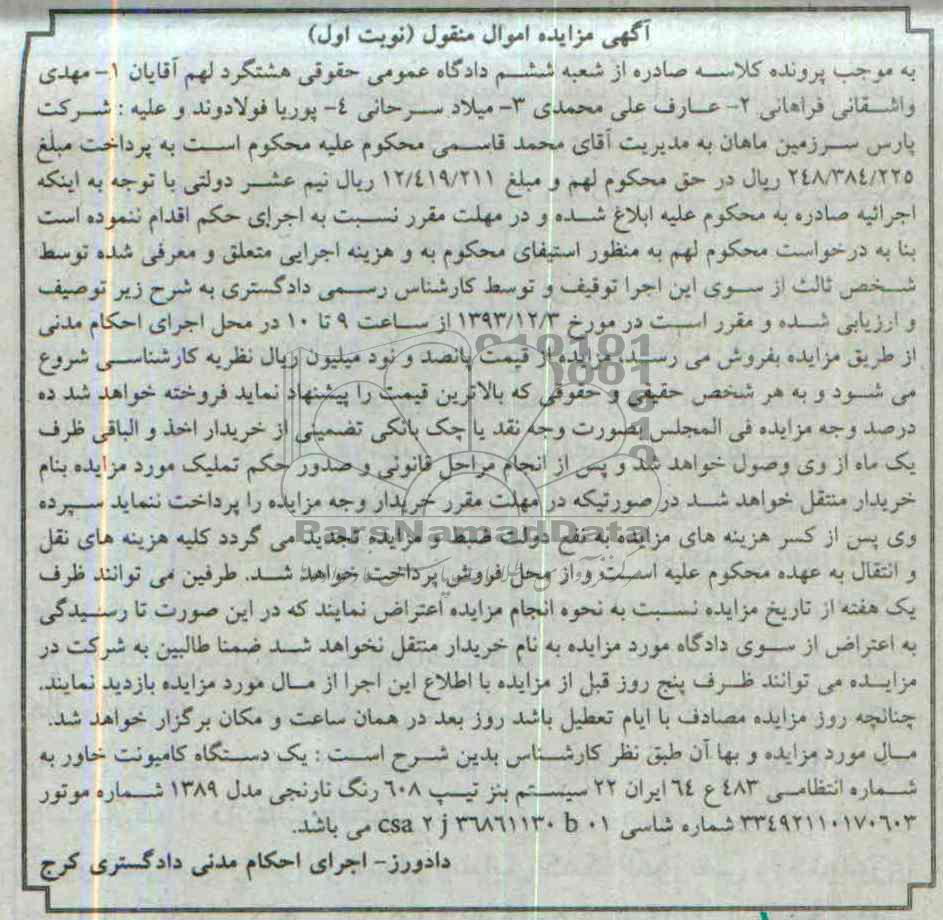 آگهی مزایده اموال منقول (نوبت اول)
به موجب پرونده کلاسه صادره از شعبه ششم دادگاه عمومی حقوقی هشتگرد لهم آقایان ۱- مهدی
واشقانی فراهانی ۲- عارف علی محمدی ۳- میلاد سرحانی ٤- پوریا فولادوند و علیه : شرکت
پارس سرزمین ماهان به مدیریت آقای محمد قاسمی محکوم علیه محکوم است به پرداخت مبلغ
۲٤۸/۳۸٤/۲۲۵ ریال در حق محکوم لهم و مبلغ ۱۲/٤۱۹/۲۱۱ ریال نیم عشر دولتی با توجه به اینکه
اجرائیه صادره به محکوم علیه ابلاغ شده و در مهلت مقرر نسبت به اجرای حکم اقدام ننموده است
بنا به درخواست محکوم لهم به منظور استیفای محکوم به و هزینه اجرایی متعلق و معرفی شده توسط
شخص ثالث از سوی این اجرا توقیف و توسط کارشناس رسمی دادگستری به شرح زیر توصیف
و ارزیابی شده و مقرر است در مورخ ۱۳۹۳/۱۲/۳ از ساعت ۹ تا ۱۰ در محل اجرای احکام مدنی
از طریق مزایده بفروش می رسد، مزایده از قیمت پانصد و نود میلیون ریال نظریه کارشناسی شروع
می شود و به هر شخص حقیقی و حقوقی که بالاترین قیمت را پیشنهاد نماید فروخته خواهد شد ده
درصد وجه مزایده فی المجلس بصورت وجه نقد یا چک بانکی تضمینی از خریدار اخذ و الباقی ظرف
یک ماه از وی وصول خواهد شد و پس از انجام مراحل قانونی و صدور حکم تملیک مورد مزایده بنام
خریدار منتقل خواهد شد در صورتیکه در مهلت مقرر خریدار وجه مزایده را پرداخت ننماید سپرده
وی پس از کسر هزینه های مزایده به نفع دولت ضبط و مزایده تجدید می گردد کلیه هزینه های نقل
و انتقال به عهده محکوم علیه است و از محل فروش پرداخت خواهد شد. طرفین می توانند ظرف
یک هفته از تاریخ مزایده نسبت به نحوه انجام مزایده اعتراض نمایند که در این صورت تا رسیدگی
به اعتراض از سوی دادگاه مورد مزایده به نام خریدار منتقل نخواهد شد ضمنا طالبین به شرکت در
مزایده می توانند ظرف پنج روز قبل از مزایده با اطلاع این اجرا از مال مورد مزایده بازدید نمایند.
چنانچه روز مزایده مصادف با ایام تعطیل باشد روز بعد در همان ساعت و مکان برگزار خواهد شد.
مال مورد مزایده و بها آن طبق نظر کارشناس بدین شرح است : یک دستگاه کامیونت خاور به
شماره انتظامی ٤۸۳ ع ٦٤ ایران ۲۲ سیستم بنز تیپ ٦۰۸ رنگ نارنجی مدل ۱۳۸۹ شماره موتور
۳۳٤۹۲۱۱۰۱۷۰٦۰۳ شماره شاسی csa ۲ j ۳٦۸٦۱۱۳۰ b ۰۱ می باشد.
دادورز- اجرای احکام مدنی دادگستری کرج
ParsNamadData